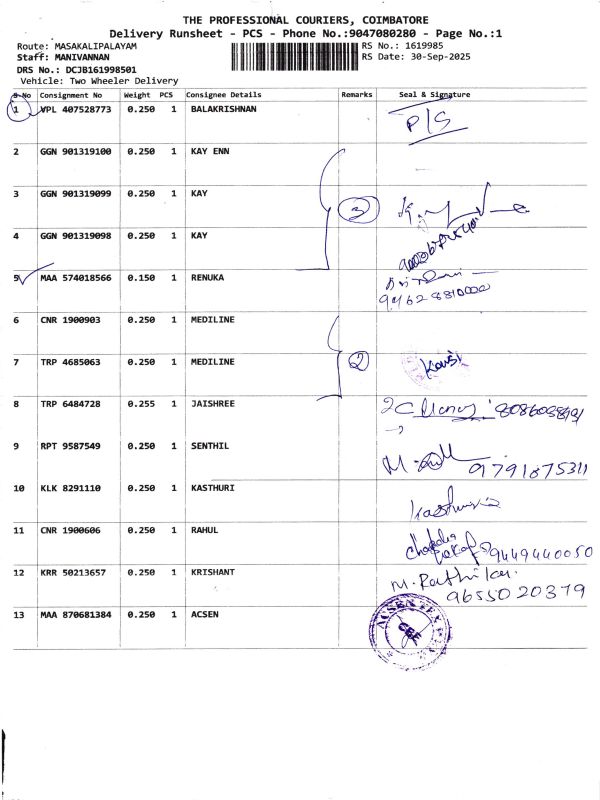 THE PROFESSIONAL COURIERS, COIMBATORE
Delivery Runsheet - PCS - Phone No.:9047080280 - Page No.:1
Route: MASAKALIPALAYAM RS No.: 1619985
Staff: MANIVANNAN RS Date: 30-Sep-2025
DRS No.: DCJB161998501
Vehicle: Two Wheeler Delivery
S No Consignment No Weight PCS Consignee Details Remarks Seal & Signature
1 VPL 407528773 0.250 1 BALAKRISHNAN P/S
2 GGN 901319100 0.250 1 KAY ENN
3 GGN 901319099 0.250 1 KAY 3
4 GGN 901319098 0.250 1 KAY
5 MAA 574018566 0.150 1 RENUKA
6 CNR 1900903 0.250 1 MEDILINE
7 TRP 4685063 0.250 1 MEDILINE 2
8 TRP 6484728 0.255 1 JAISHREE
9 RPT 9587549 0.250 1 SENTHIL 9791875311
10 KLK 8291110 0.250 1 KASTHURI
11 CNR 1900606 0.250 1 RAHUL 9449440050
12 KRR 50213657 0.250 1 KRISHANT M. Rathika.
9655020379
13 MAA 870681384 0.250 1 ACSEN ACSEN TEX